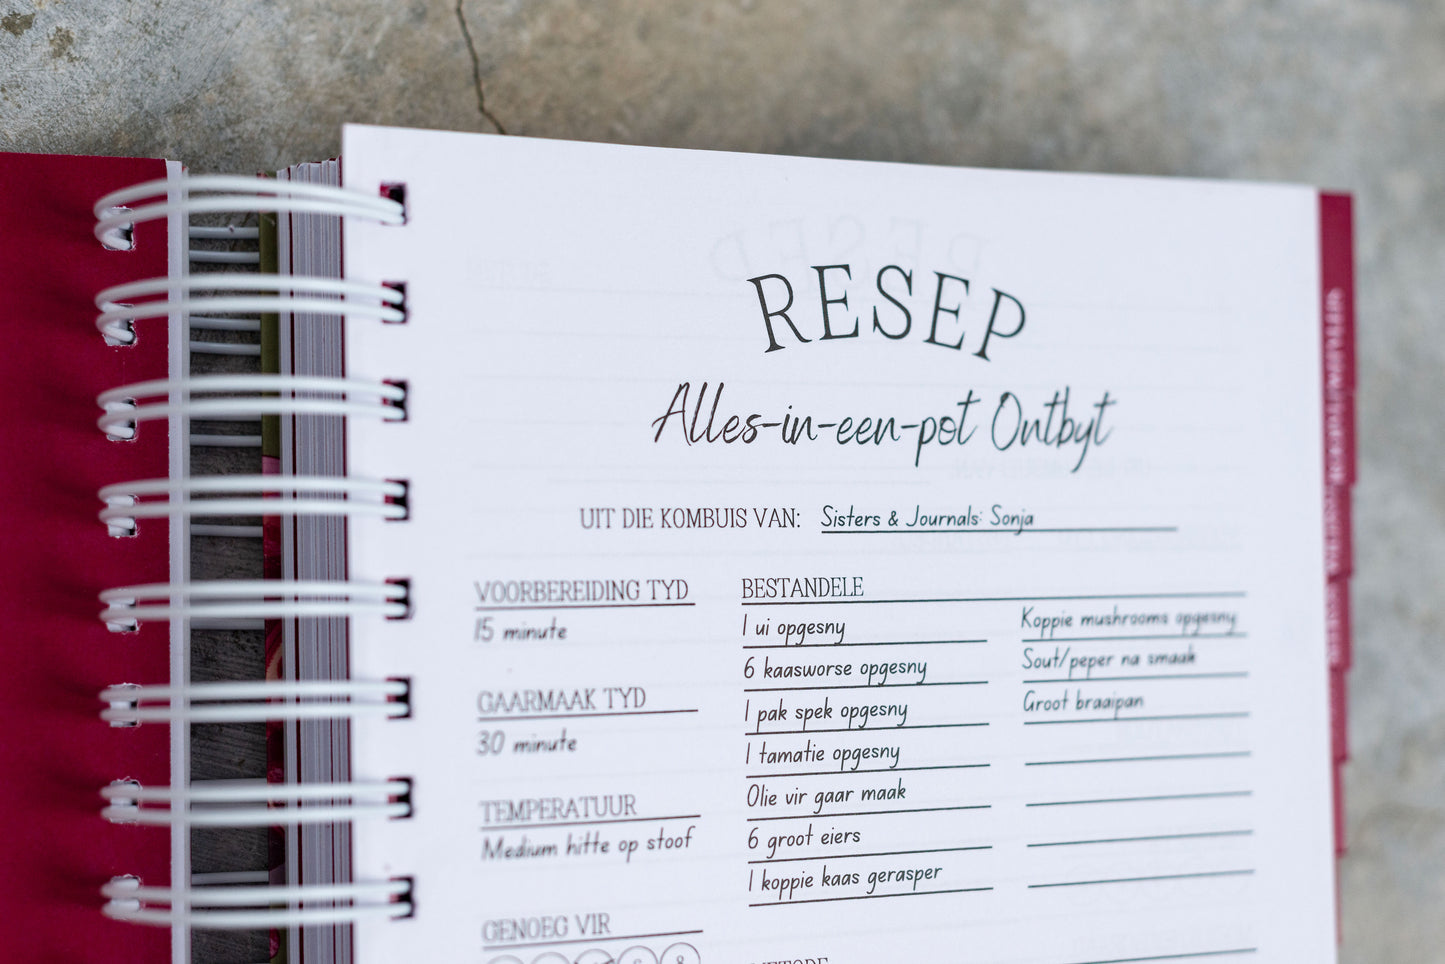 RESEP
Alles-in-een-pot Ontbyt
UIT DIE KOMBUIS VAN: Sisters & Journals: Sonja
VOORBEREIDING TYD
15 minute
GAARMAAK TYD
30 minute
TEMPERATUUR
Medium hitte op stoof
GENOEG VIR
8
BESTANDELE
1 ui opgesny
6 kaasworse opgesny
1 pak spek opgesny
1 tamatie opgesny
Olie vir gaar maak
6 groot eiers
1 koppie kaas gerasper
Koppie mushrooms opgesny
Sout/peper na smaak
Groot braaipan
METODE